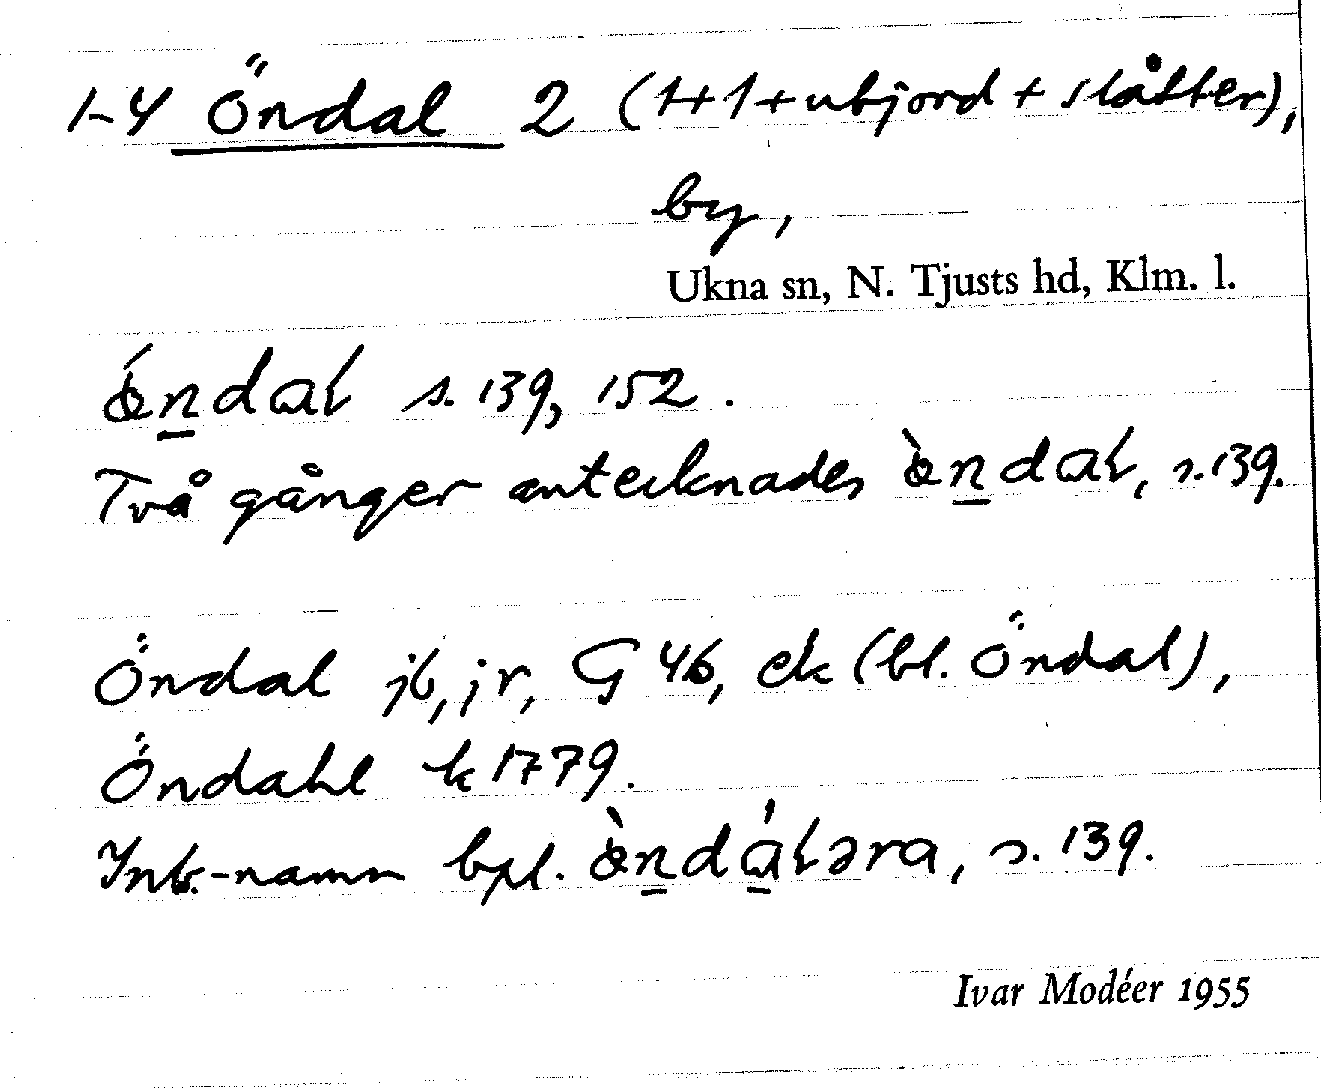 1-4 Öndal 2 (1+1+utjord + slåtter),
by,
Ukna sn, N. Tjusts hd, Klm. l.
s. 139, 152.
Två gånger antecknades s. 139.
Öndal jb, jr, G 46, ek (bl. Öndal),
Öndahl k 1779.
Inb.-namn bpl. s. 139.
Ivar Modéer 1955